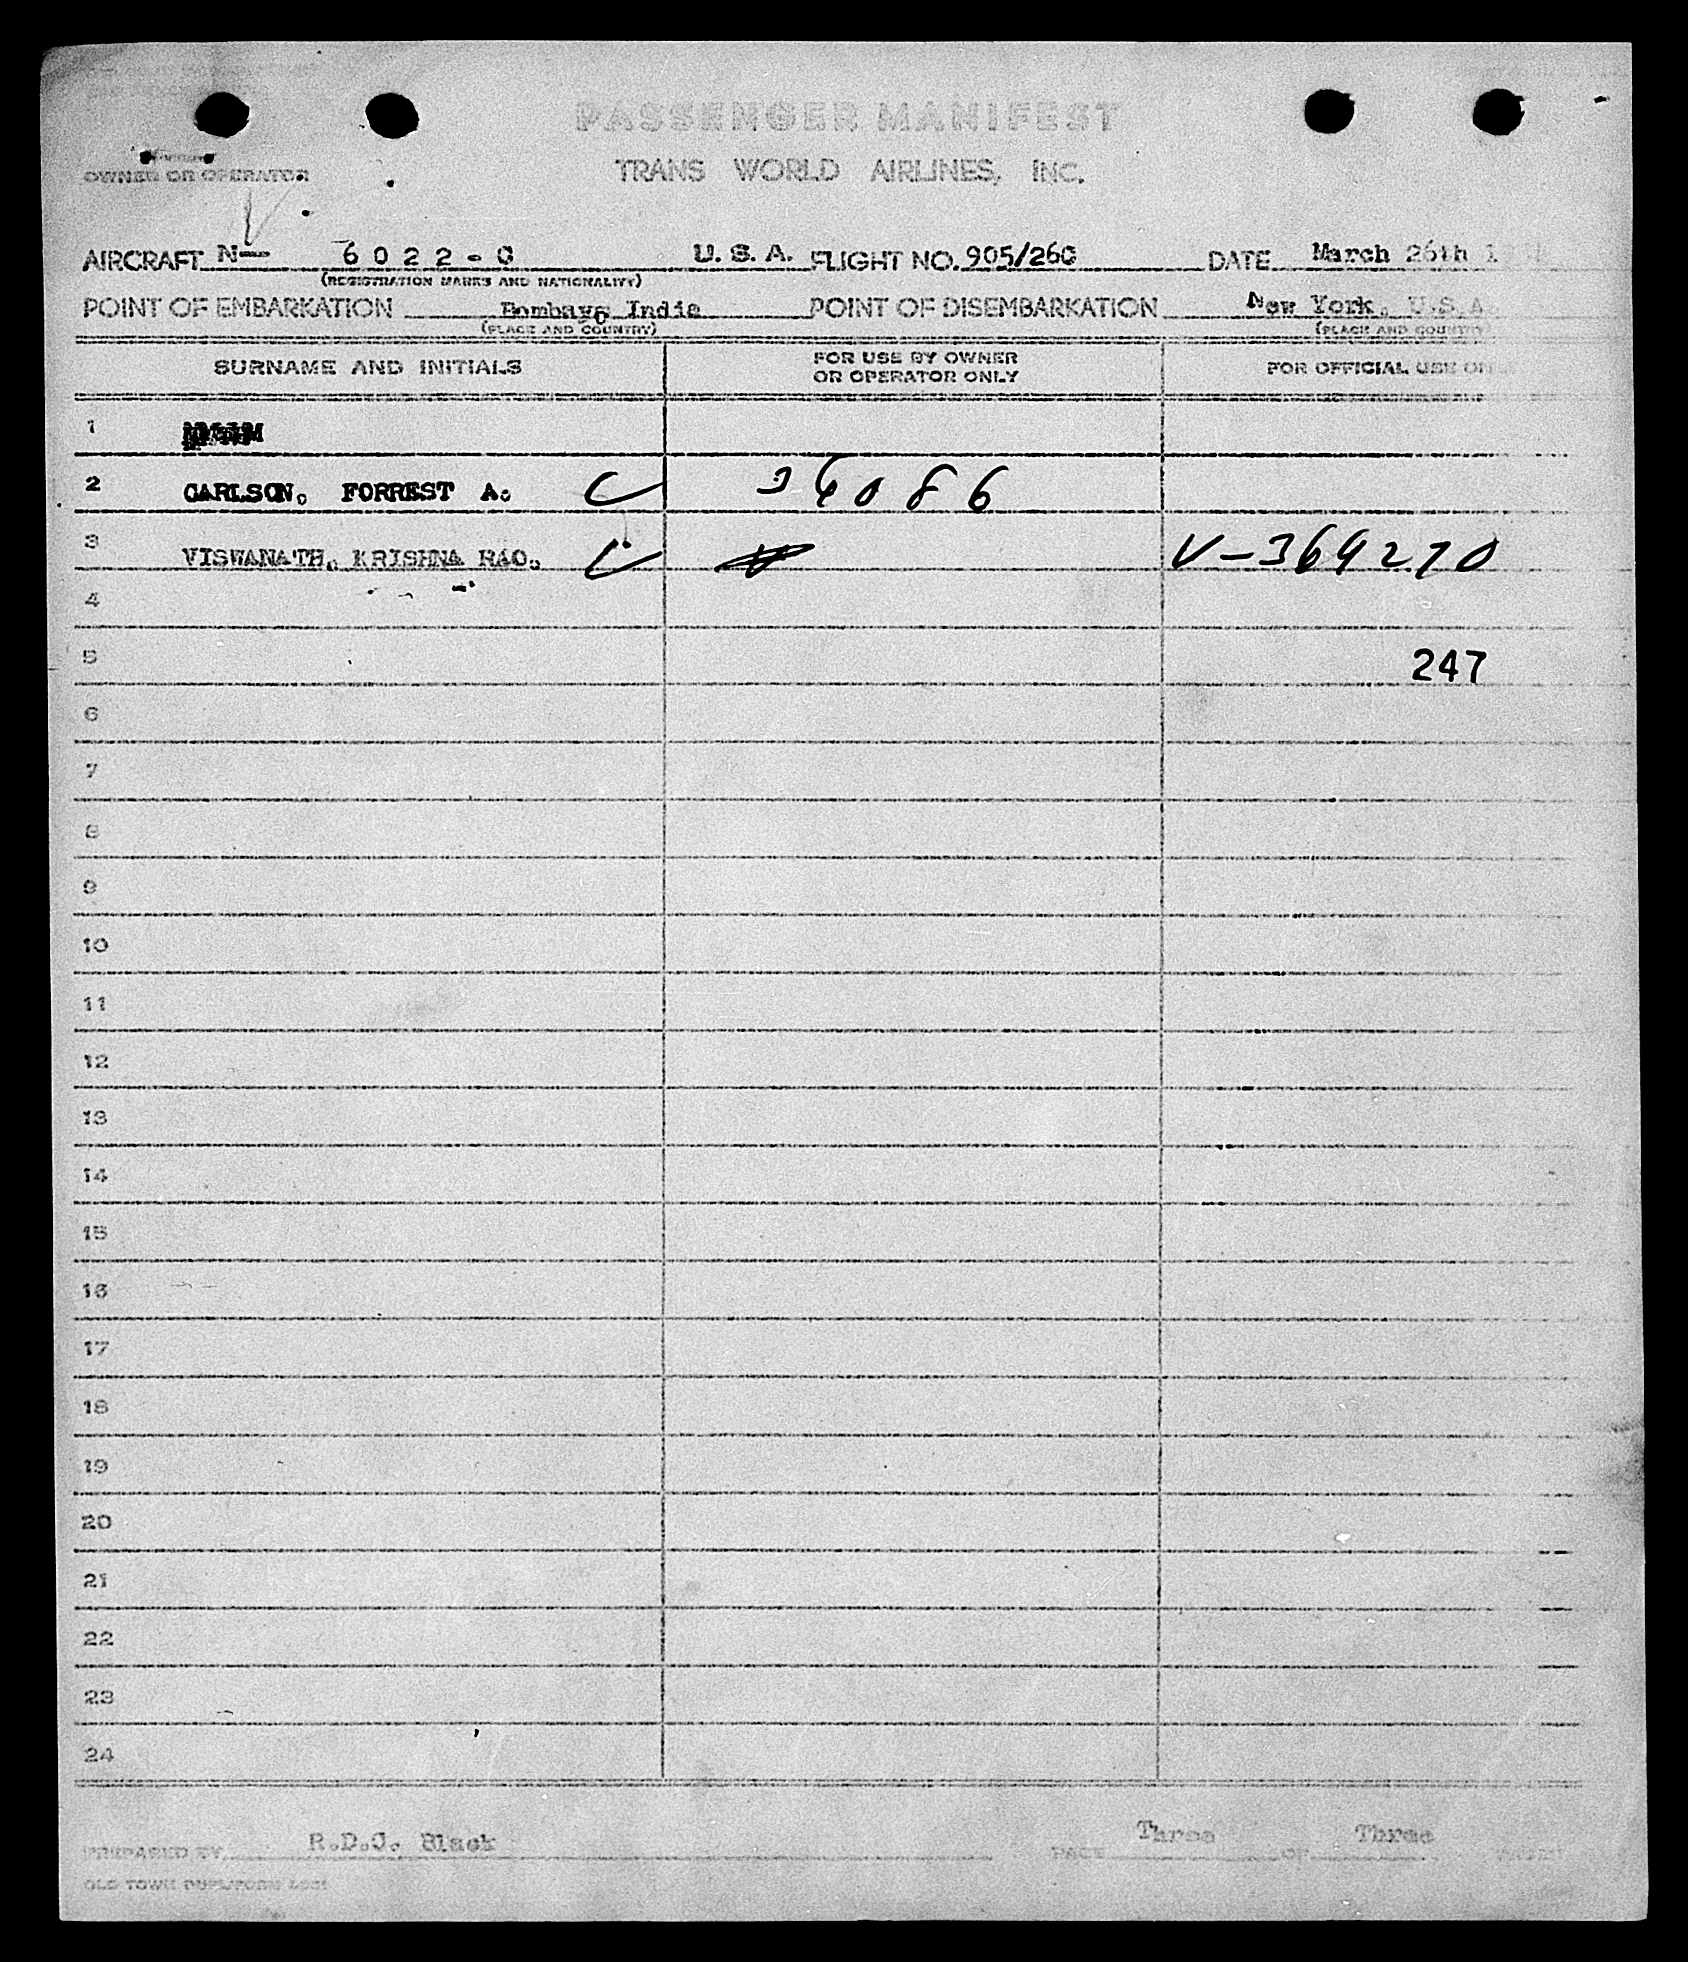 PASSENGER MANIFEST
OWNER OR OPERATOR
TRANS WORLD AIRLINES, INC.
AIRCRAFT N— 6022-C U.S.A. FLIGHT NO. 905/26C DATE March 26th
(REGISTRATION MARKS AND NATIONALITY)
POINT OF EMBARKATION Bombay, India POINT OF DISEMBARKATION New York, U.S.A.
(PLACE AND COUNTRY) (PLACE AND COUNTRY)
SURNAME AND INITIALS FOR USE BY OWNER OR OPERATOR ONLY FOR OFFICIAL USE ON
1
2 CARLSON, FORREST A. 36086
3 VISWANATH, KRISHNA RAO. V-369270
4
5 247
6
7
8
9
10
11
12
13
14
15
16
17
18
19
20
21
22
23
24
PREPARED BY R.D.J. Black PAGE Three OF Three
OLD TOWN